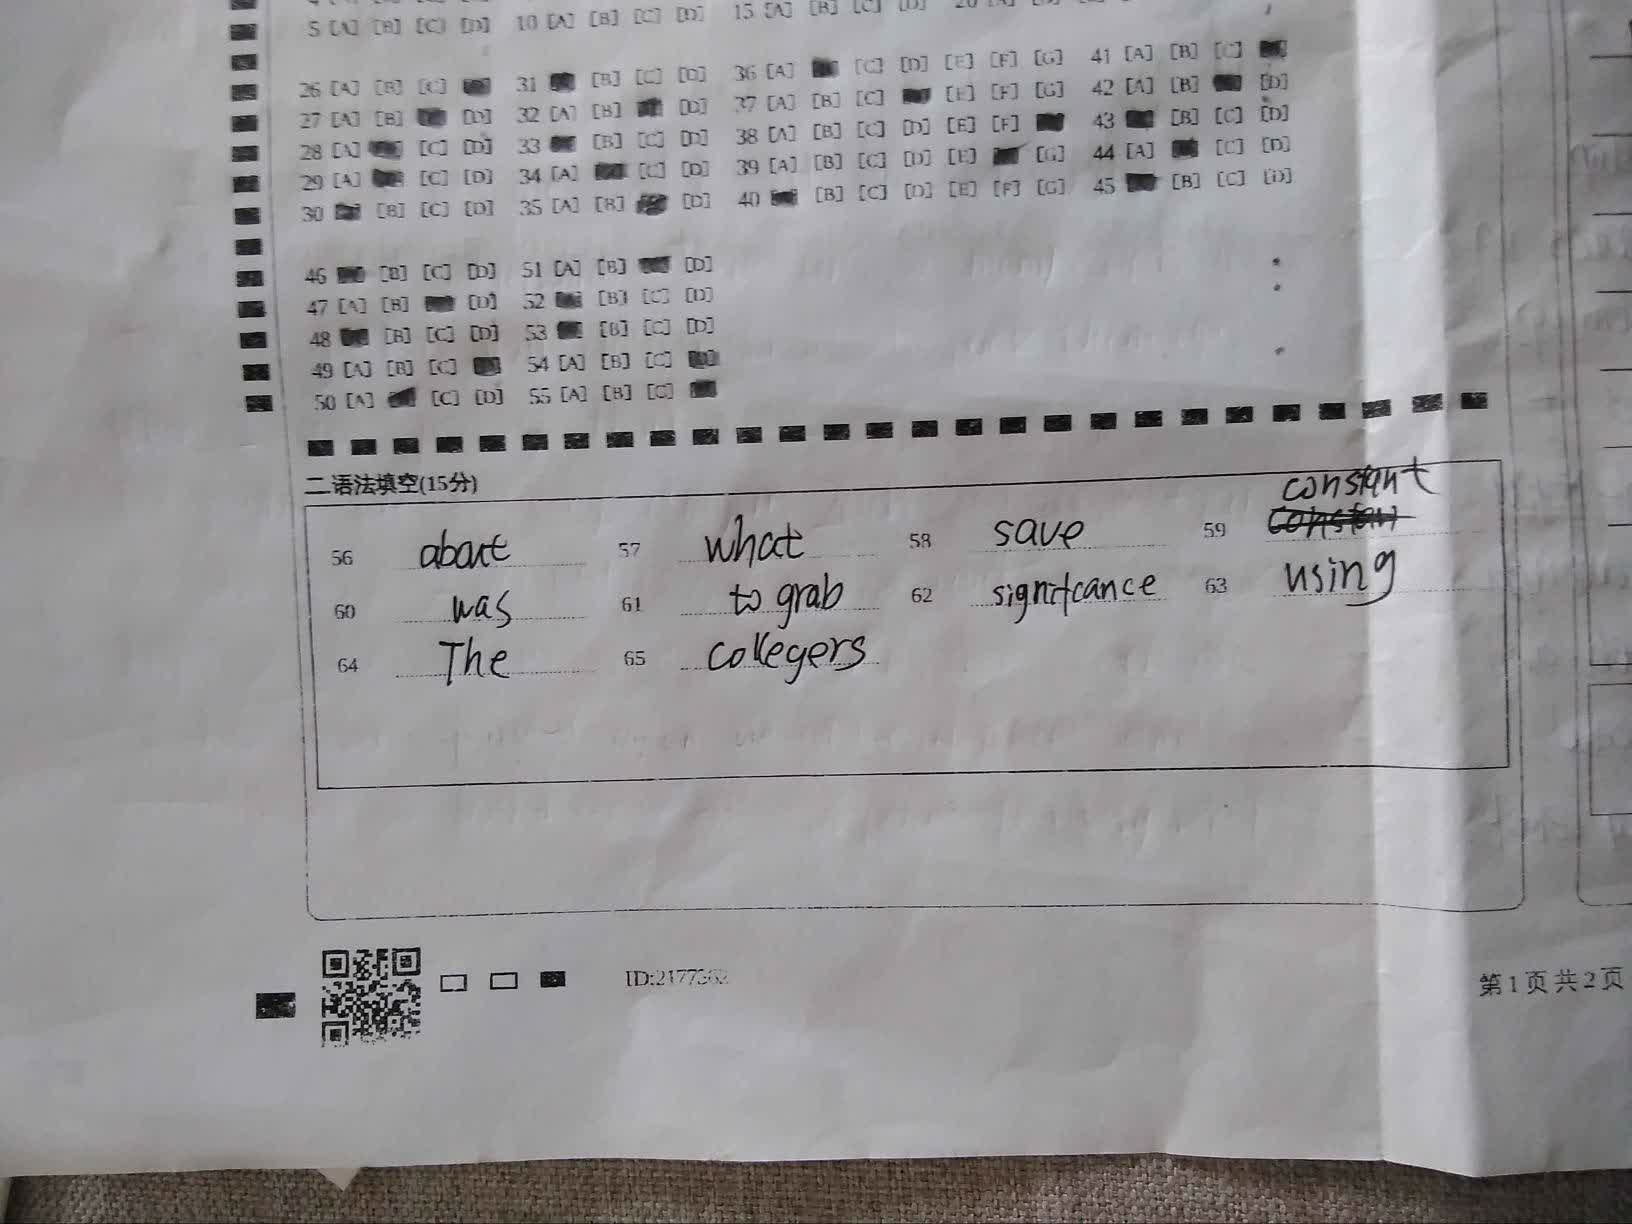 5 [A] [B] [C] [D] 10 [A] [B] [C] [D] 15 [A] [B] [C] [D] 20 [A]
26 [A] [B] [C] 31 [B] [C] [D] 36 [A] [C] [D] [E] [F] [G] 41 [A] [B] [C]
27 [A] [B] [D] 32 [A] [B] [D] 37 [A] [B] [C] [E] [F] [G] 42 [A] [B] [D]
28 [A] [C] [D] 33 [B] [C] [D] 38 [A] [B] [C] [D] [E] [F] 43 [B] [C] [D]
29 [A] [C] [D] 34 [A] [C] [D] 39 [A] [B] [C] [D] [E] [G] 44 [A] [C] [D]
30 [B] [C] [D] 35 [A] [B] [D] 40 [B] [C] [D] [E] [F] [G] 45 [B] [C] [D]
46 [B] [C] [D] 51 [A] [B] [D]
47 [A] [B] [D] 52 [B] [C] [D]
48 [B] [C] [D] 53 [B] [C] [D]
49 [A] [B] [C] 54 [A] [B] [C]
50 [A] [C] [D] 55 [A] [B] [C]
二.语法填空(15分)
56 about 57 what 58 save 59 constant
60 was 61 to grab 62 significance 63 using
64 The 65 collegers
ID:2177362
第1页共2页